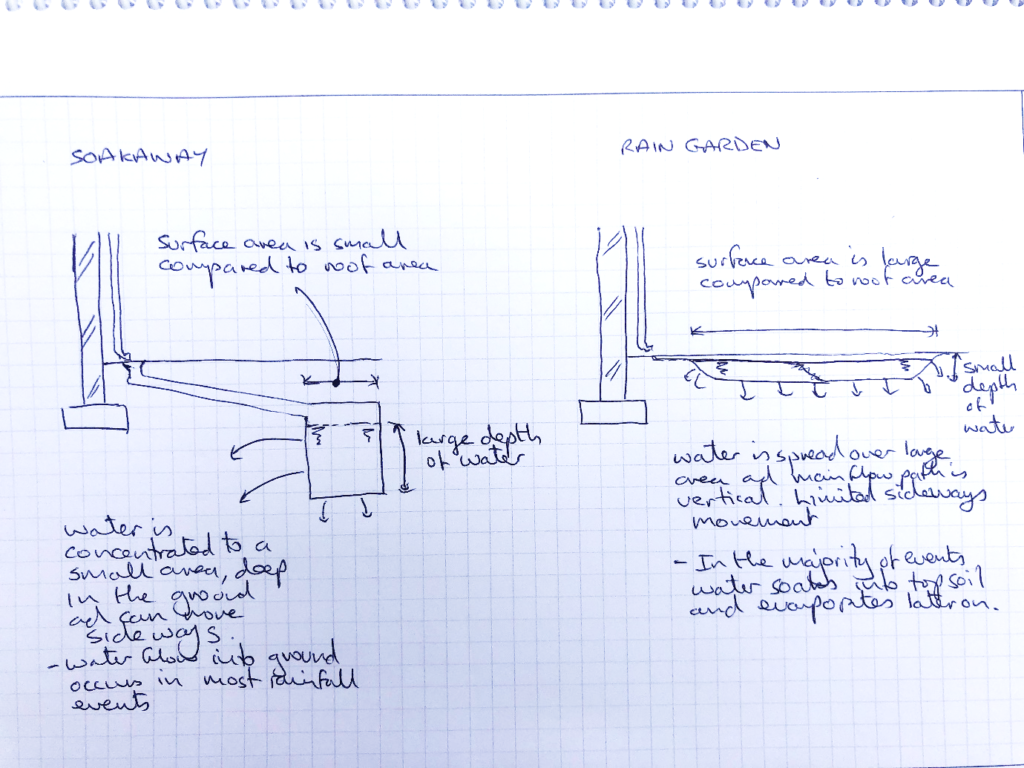 SOAKAWAY
Surface area is small
compared to roof area
large depth
of water
water is
concentrated to a
small area, deep
in the ground
ad can move
sideways.
- water flow into ground
occurs in most rainfall
events
RAIN GARDEN
surface area is large
compared to roof area
small
depth
of
water
water is spread over large
area ad main flow path is
vertical. Limited sideways
movement
- In the majority of events
water soaks into topsoil
and evaporates later on.